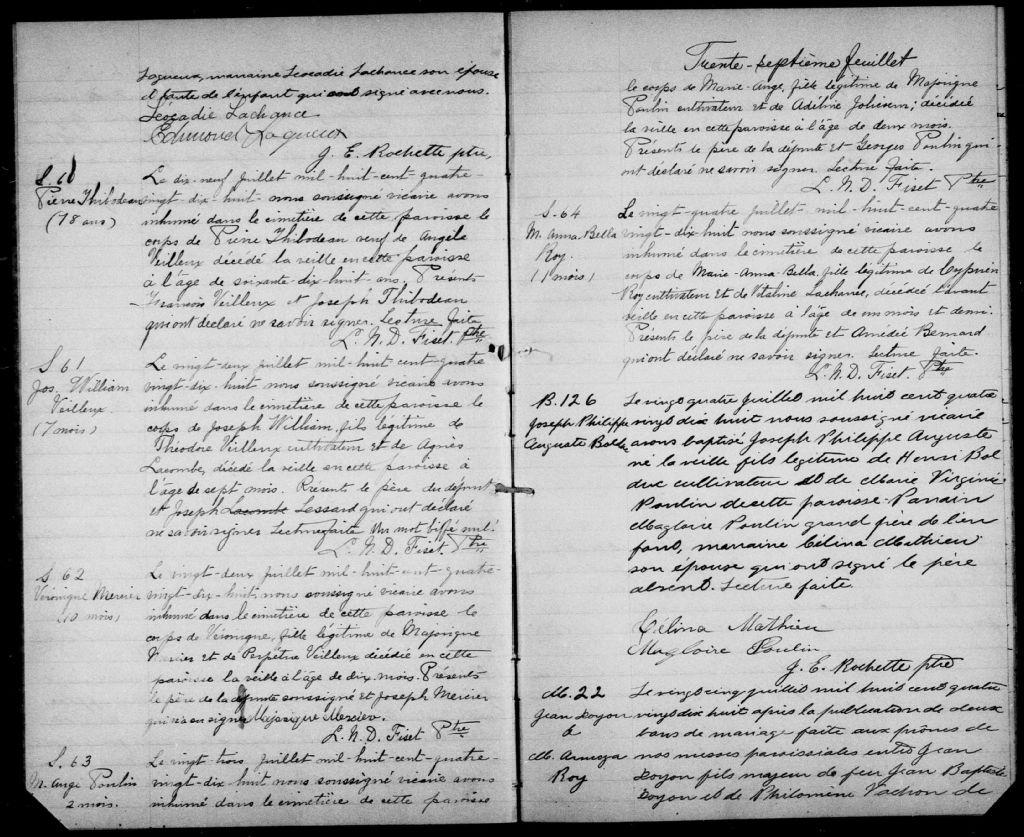 Laqueux, marraine Léocadie Lachance son épouse
et tante de l'enfant qui ont signé avec nous.
Léocadie Lachance
Edmond Laqueux
J. E. Rochette ptre,
S. 60
Pierre Thibodeau
(78 ans)
Le dix-neuf juillet mil-huit-cent-quatre-
vingt-dix-huit nous soussigné vicaire avons
inhumé dans le cimetière de cette paroisse le
corps de Pierre Thibodeau veuf de Angèle
Veilleux décédé la veille en cette paroisse
à l'âge de soixante-dix-huit-ans. Présents
François Veilleux et Joseph Thibodeau
qui ont déclaré ne savoir signer. Lecture faite
L. N. D. Fiset. Ptre
S 61
Jos. William
Veilleux
(7 mois)
Le vingt-deux juillet mil-huit-cent-quatre
vingt-dix-huit nous soussigné vicaire avons
inhumé dans le cimetière de cette paroisse le
corps de Joseph William, fils légitime de
Théodore Veilleux cultivateur et de Agnès
Lacombe, décédé la veille en cette paroisse à
l'âge de sept mois. Présents le père du défunt
et Joseph Lacombe Lessard qui ont déclaré
ne savoir signer Lecture faite Un mot biffé nul.
L. N. D. Fiset. Ptre
S. 62
Véronique Mercier
(10 mois)
Le vingt-deux juillet mil-huit-cent-quatre-
vingt-dix-huit, nous soussigné vicaire avons
inhumé dans le cimetière de cette paroisse le
corps de Véronique, fille légitime de Majorique
Mercier et de Perpétue Veilleux décédée en cette
paroisse la veille à l'âge de dix mois. Présents
le père de la défunte soussigné et Joseph Mercier
qui n'a su signer Majorique Mercier.
L. N. D. Fiset Ptre
S. 63
M. Ange Poulin
2 mois.
Le vingt trois juillet mil-huit-cent-quatre-
vingt-dix-huit nous soussigné vicaire avons
inhumé dans le cimetière de cette paroisse
Trente-septième feuillet
le corps de Marie-Ange, fille légitime de Majorique
Poulin cultivateur et de Adeline Jolicoeur; décédée
la veille en cette paroisse à l'âge de deux mois.
Présents le père de la défunte et Georges Poulin qui
ont déclaré ne savoir signer. Lecture faite.
L. N. D. Fiset Ptre
S. 64
M. Anna-Bella
Roy.
(1 mois)
Le vingt-quatre juillet mil-huit-cent-quatre
vingt-dix-huit nous soussigné vicaire avons
inhumé dans le cimetière de cette paroisse le
corps de Marie-Anna-Bella, fille légitime de Cyprien
Roy cultivateur et de Vitaline Lachance, décédée l'avant
veille en cette paroisse à l'âge de un mois et demi.
Présents le père de la défunte et Amédée Bernard
qui ont déclaré ne savoir signer. Lecture faite.
L. N. D. Fiset. Ptre
B. 126
Joseph Philippe
Auguste Bolduc
Le vingt quatre juillet mil huit cent quatre
vingt dix huit nous soussigné vicaire
avons baptisé Joseph Philippe Auguste
né la veille fils légitime de Henri Bol
duc cultivateur et de Marie Virginie
Poulin de cette paroisse. Parrain
Magloire Poulin grand père de l'en
fant, marraine Célina Mathieu
son épouse qui ont signé le père
absent. Lecture faite
Célina Mathieu
Magloire Poulin
J. E. Rochette ptre
M. 22
Jean Doyon
&
M. Armoza
Roy
Le vingt cinq juillet mil huit cent quatre
vingt dix huit après la publication de deux
bans de mariage faite aux prônes de
nos messes paroissiales entre Jean
Doyon fils majeur de feu Jean Baptiste
Doyon et de Philomène Vachon de